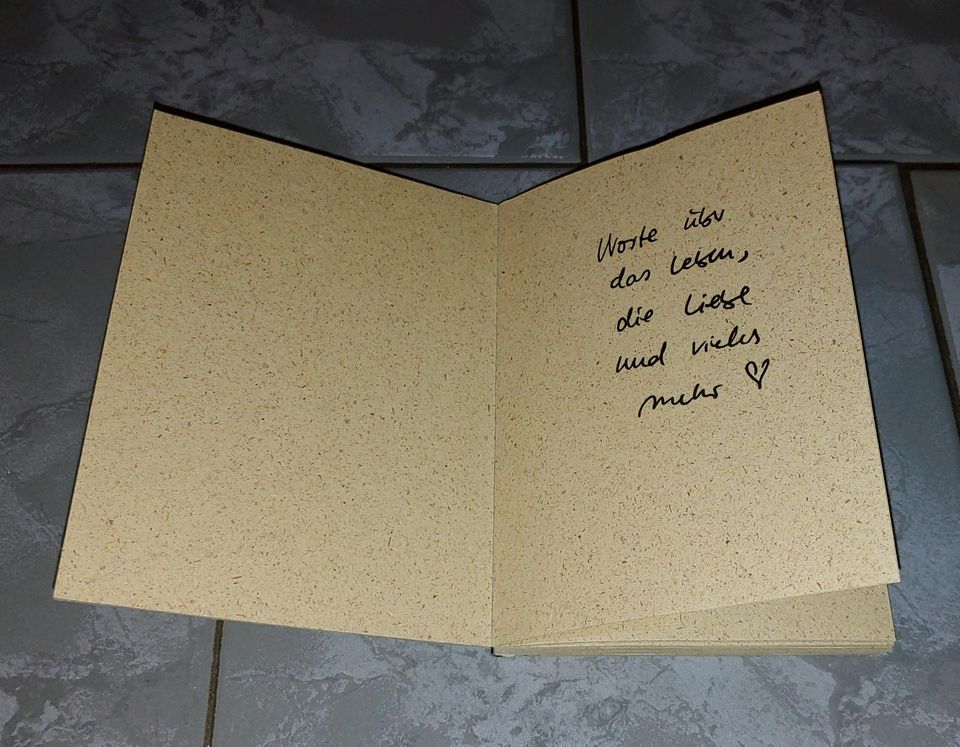 Worte über
das Leben,
die Liebe
und vieles
mehr ♡